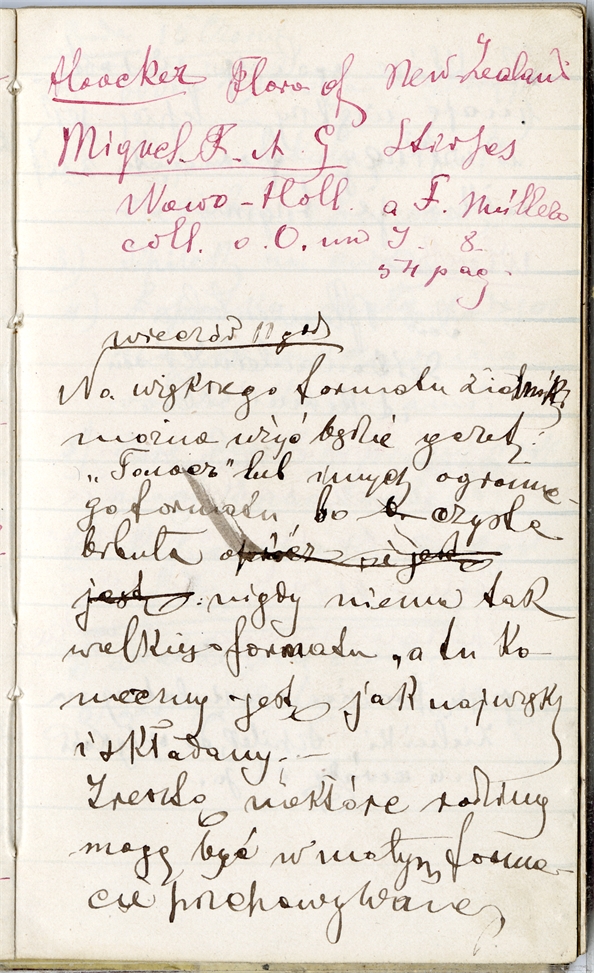 Hoocker Flora of New-Zealand
Miquel. F. A G Stirpes
Nowo-Holl. a F. Müllero
coll. o. O. und J. 8
54 pag.
wieczór 11 god
Na większego formatu zielniki
można użyć będzie gazety
"Tonaer" lub innych ogromne-
go formatu bo czysta
bibuła oprócz nie jest
jest nigdy niema tak
wielkiego formatu, a tu ko-
nieczny jest jak najwięks
i składany. —
Zresztą niektóre rodziny
mogą być w małym forma-
cie przechowywane